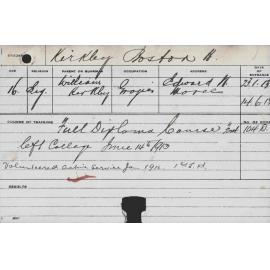 Kirkley Boston W.
AGE RELIGION PARENT OR GUARDIAN ADDRESS DATE OF ENTRANCE
16 William Kirkley Edward St 23.1.12
14.6.13
COURSE OF TRAINING
"Full Diploma Course" 104 D.
Left College June 14th 1913
Volunteered active service Jan 1916.
RESULTS